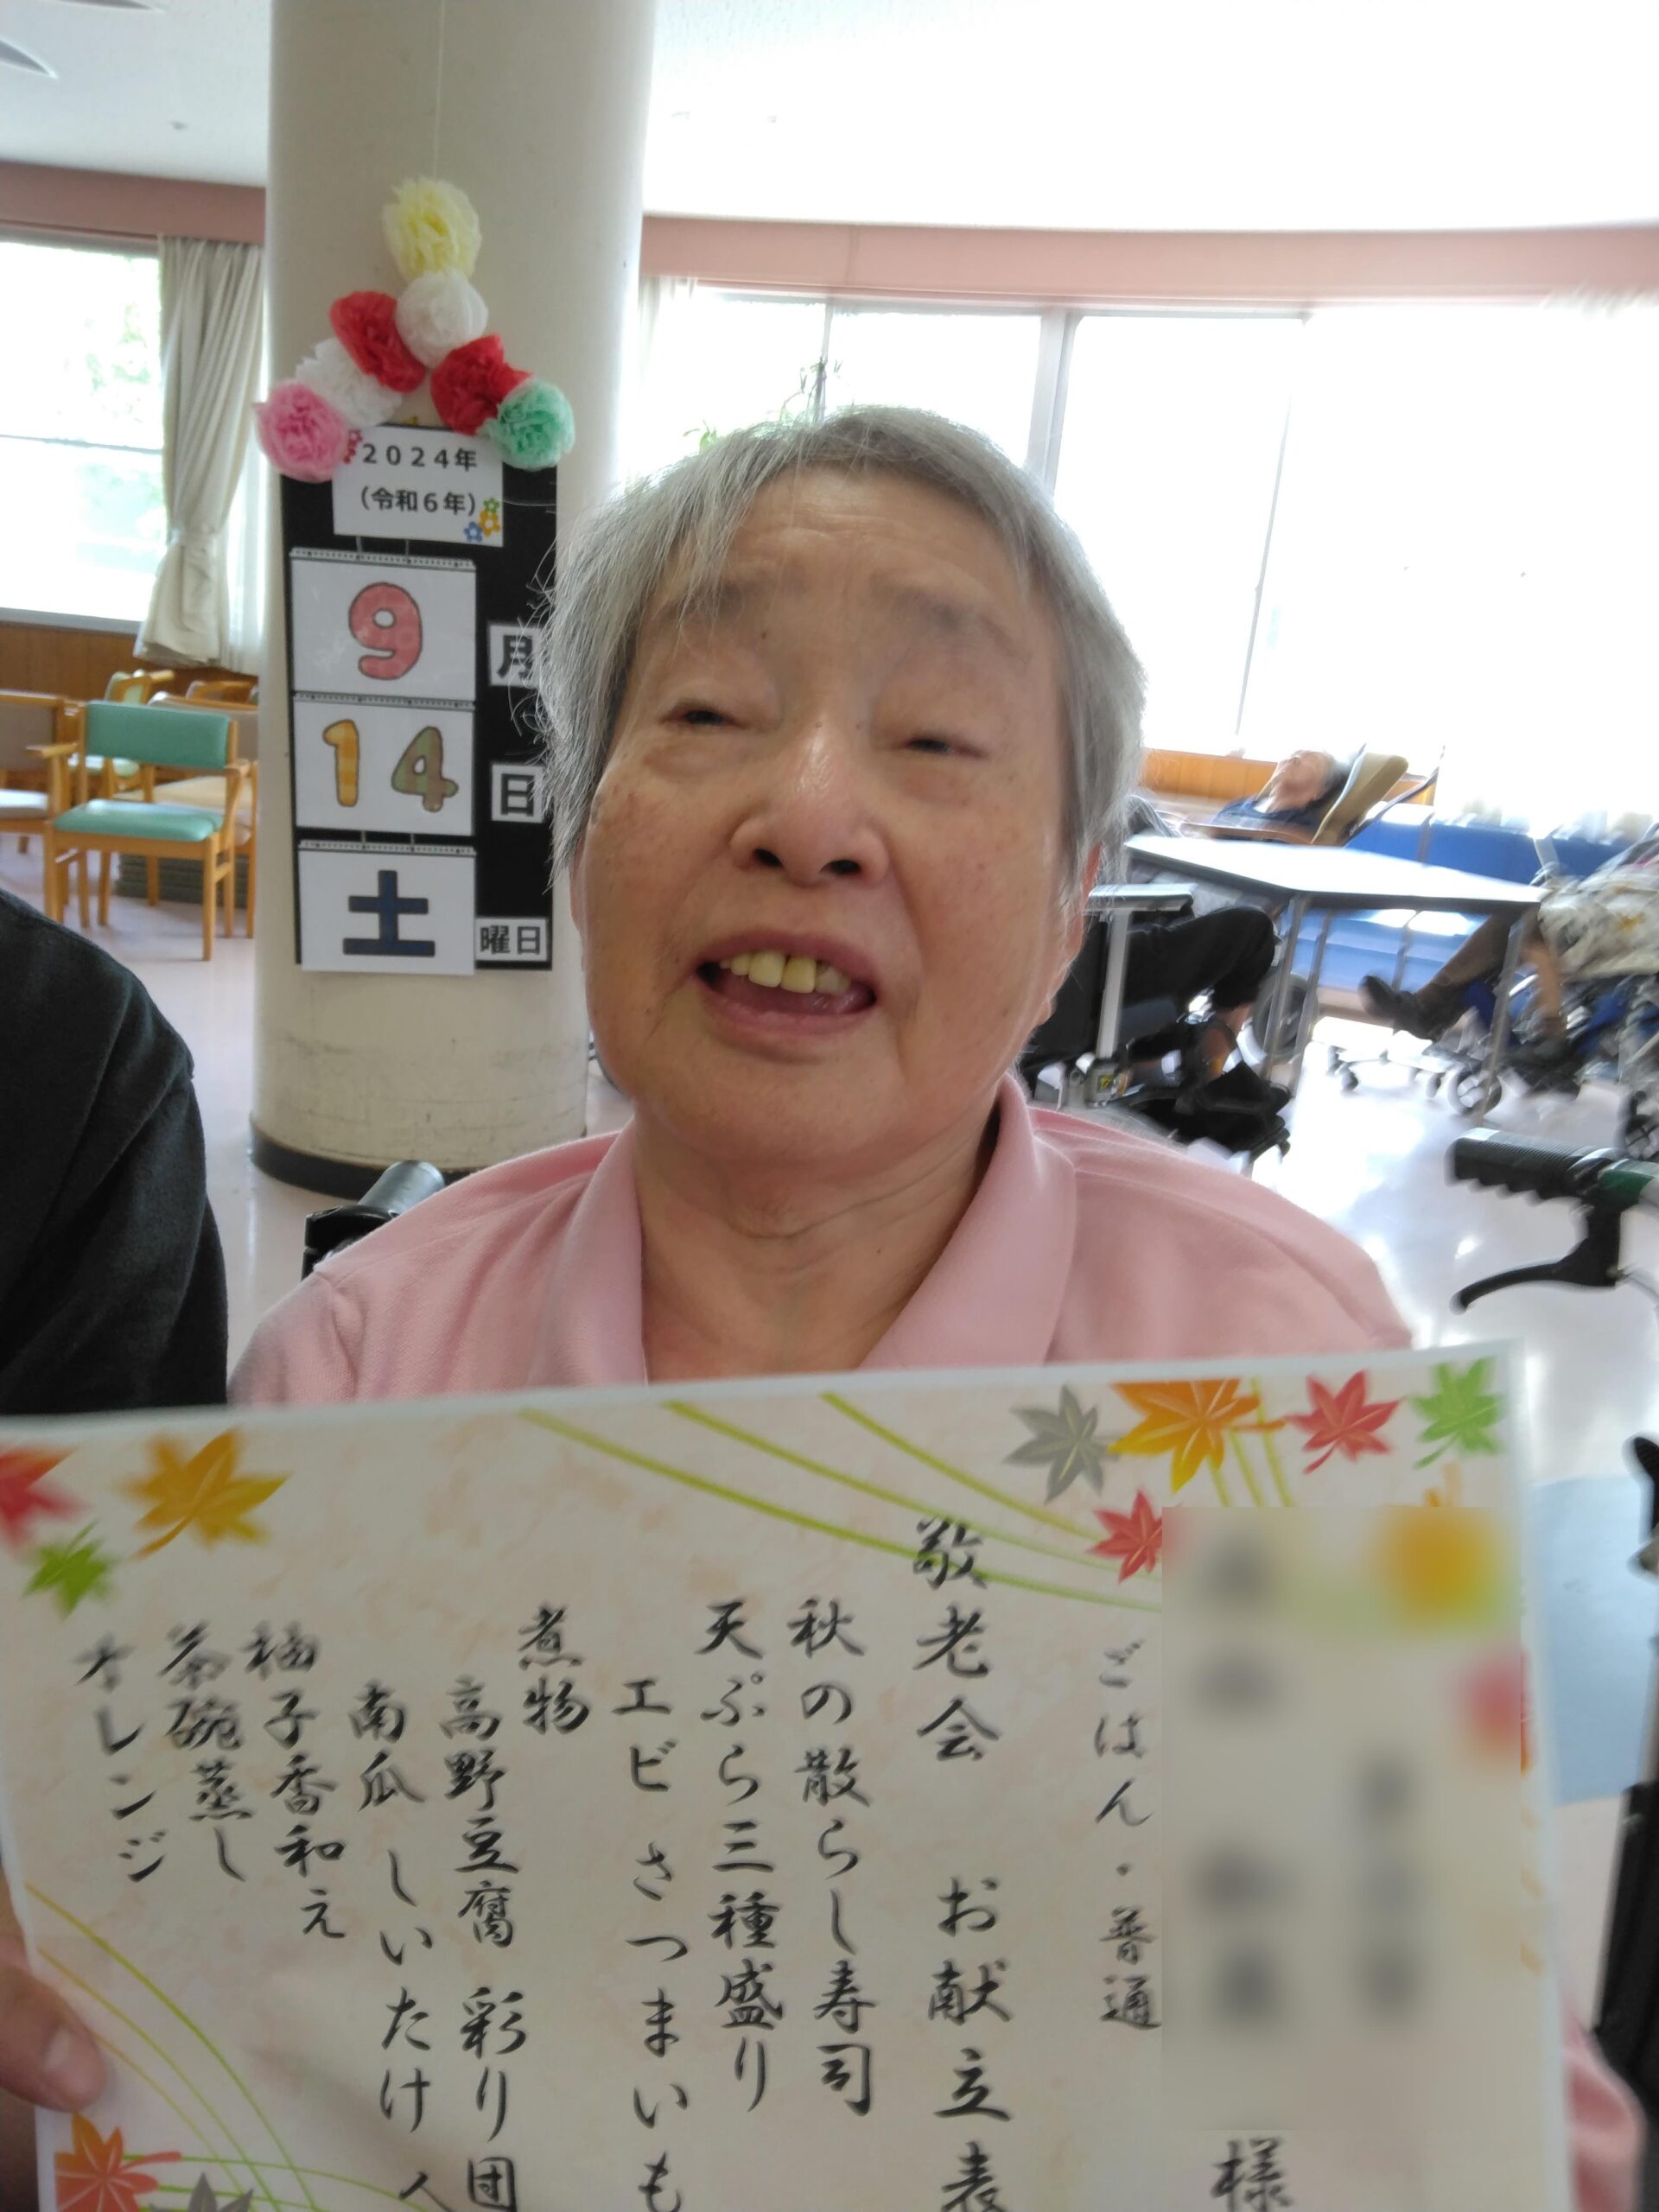 2024年
(令和6年)
9月
14日
土曜日
様
ごはん・普通
敬老会 お献立表
秋の散らし寿司
天ぷら三種盛り
エビ さつまいも
煮物
高野豆腐 彩り団
南瓜 しいたけ 人
柚子香和え
茶碗蒸し
オレンジ